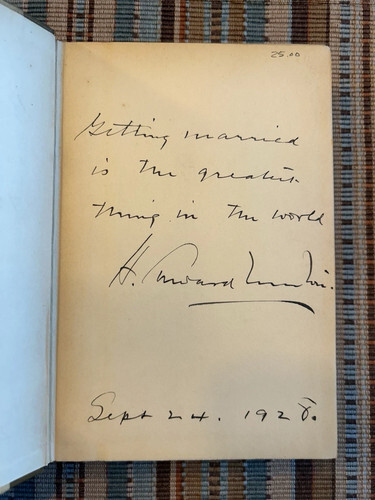 25.00
Getting married
is the greatest
thing in the world
H.
Sept 24. 1928.